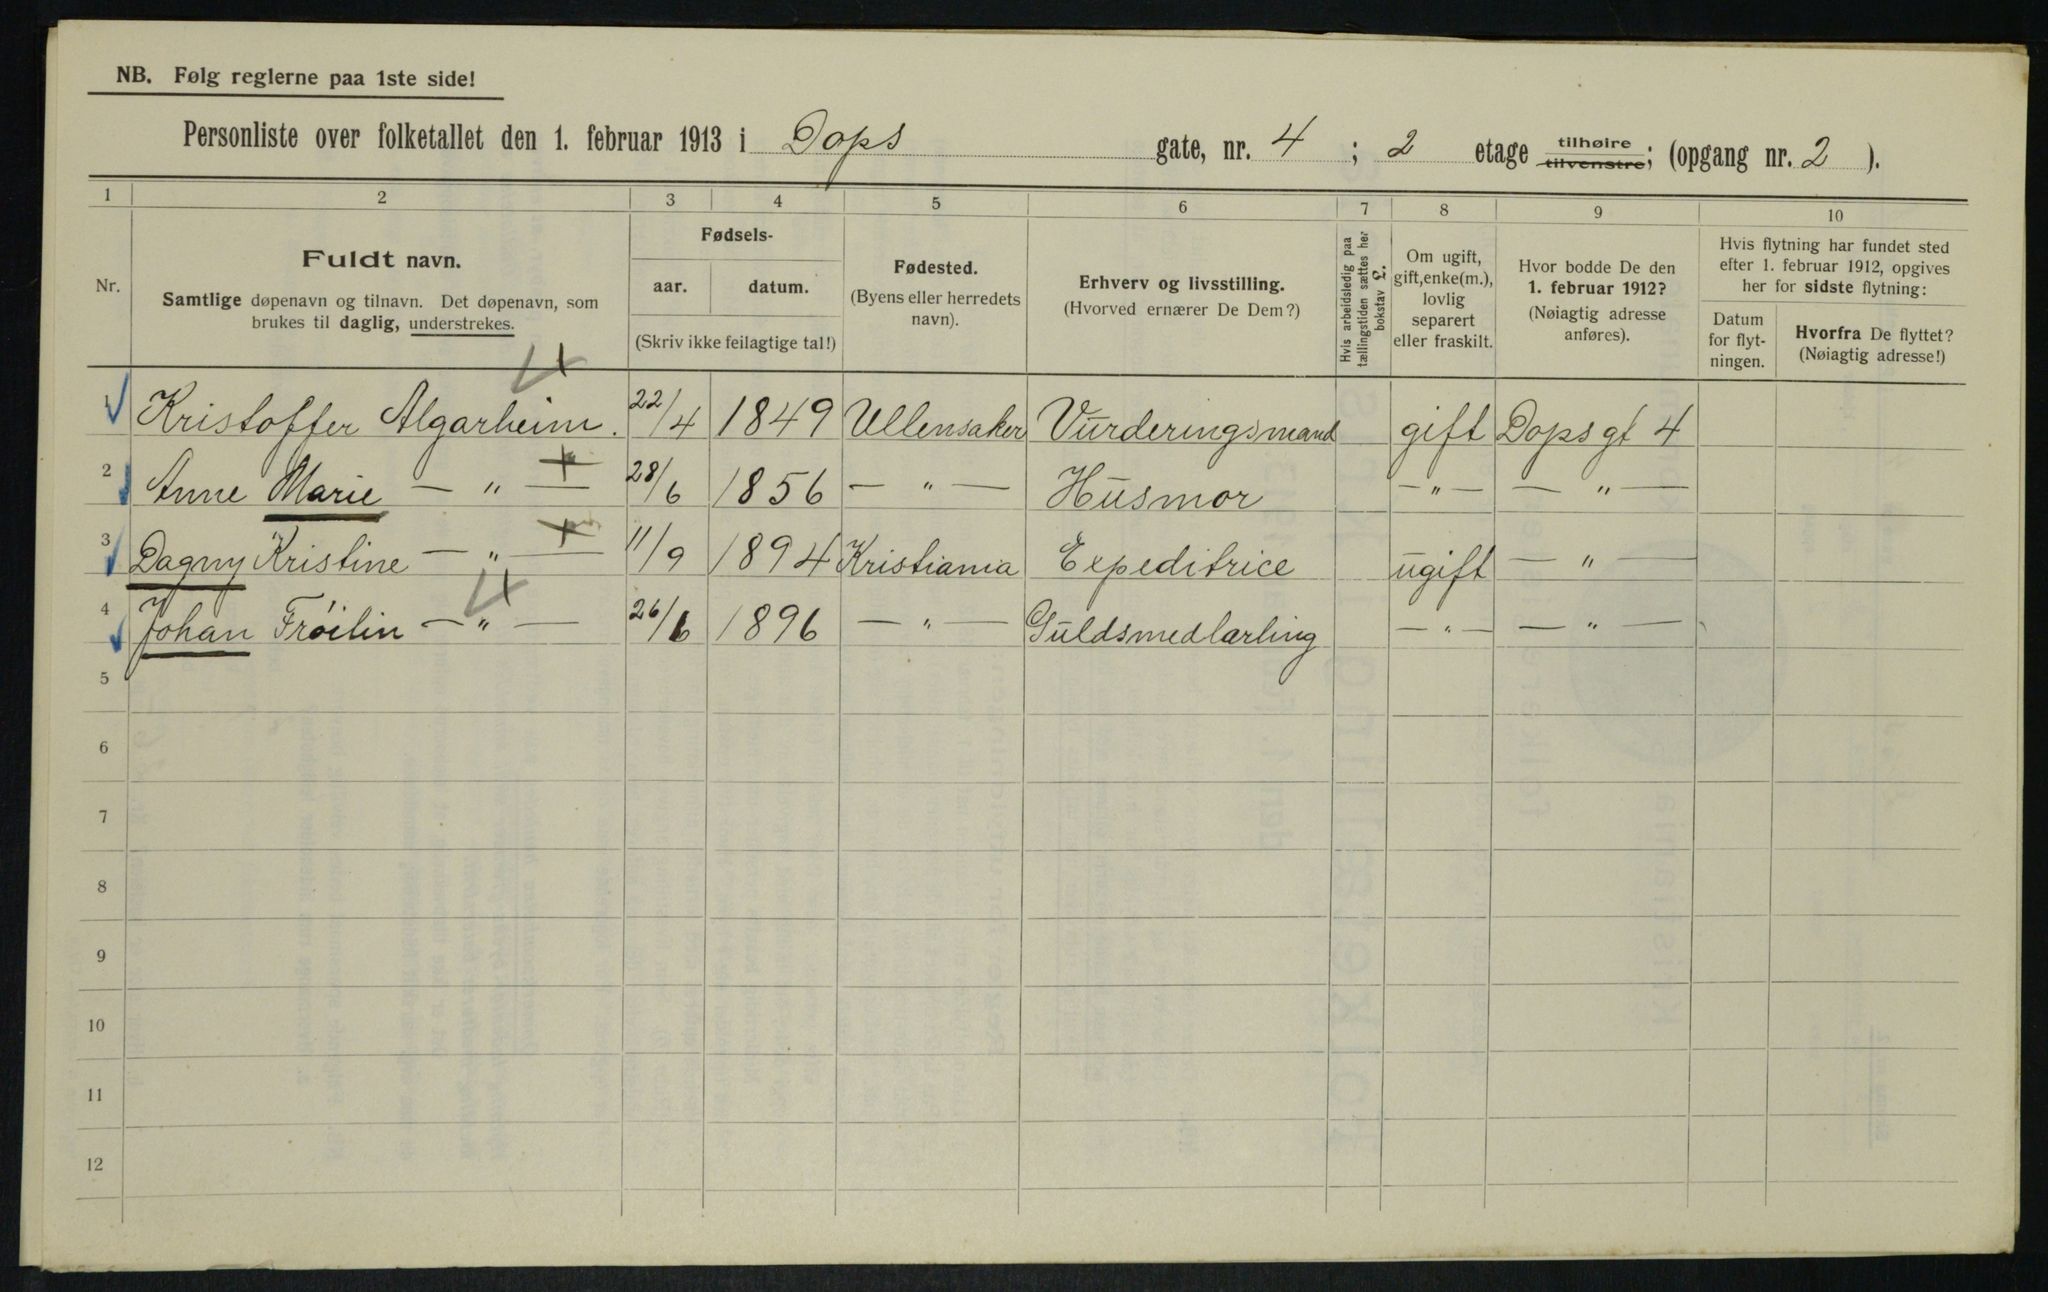 NB. Følg reglerne paa 1ste side!
Personliste over folketallet den 1. februar 1913 i Dops gate, nr. 4 ; 2 etage tilhøire tilvenstre; (opgang nr. 2 ).
1 2 3 4 5 6 7 8 9 10
Nr.
Fuldt navn.
Samtlige døpenavn og tilnavn. Det døpenavn, som
brukes til daglig, understrekes.
Fødsels-
aar. datum.
(Skriv ikke feilagtige tal!)
Fødested.
(Byens eller herredets
navn).
Erhverv og livsstilling.
(Hvorved ernærer De Dem?)
Hvis arbeidsledig paa
tællingstiden sættes her
bokstav L.
Om ugift,
gift, enke(m.),
lovlig
separert
eller fraskilt.
Hvor bodde De den
1. februar 1912?
(Nøiagtig adresse
anføres).
Hvis flytning har fundet sted
efter 1. februar 1912, opgives
her for sidste flytning:
Datum
for flyt-
ningen.
Hvorfra De flyttet?
(Nøiagtig adresse!)
1 Kristoffer Algarheim. 22/4 1849 Ullensaker Vurderingsmand gift Dops gt 4
2 Anne Marie — " — 28/6 1856 — " — Husmor — " — — " —
3 Dagny Kristine — " — 11/9 1894 Kristiania Expeditrice ugift — " —
4 Johan Frøilin — " — 26/6 1896 — " — Guldsmedlærling — " — — " —
5
6
7
8
9
10
11
12